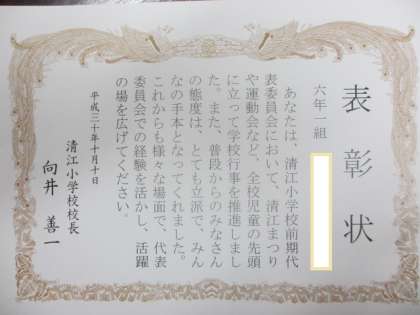 表彰状
六年一組
あなたは、清江小学校前期代
表委員会において、清江まつり
や運動会など、全校児童の先頭
に立って学校行事を推進しまし
た。また、普段からのみなさん
の態度は、とても立派で、みん
なの手本となってくれました。
これからも様々な場面で、代表
委員会での経験を活かし、活躍
の場を広げてください。
平成三十年十月十日
清江小学校校長
向井善一